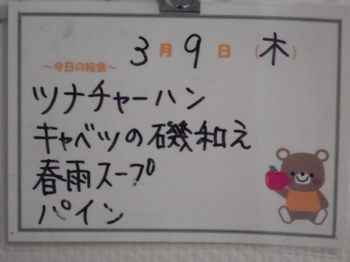 3月9日(木)
～今日の給食～
ツナチャーハン
キャベツの磯和え
春雨スープ
パイン